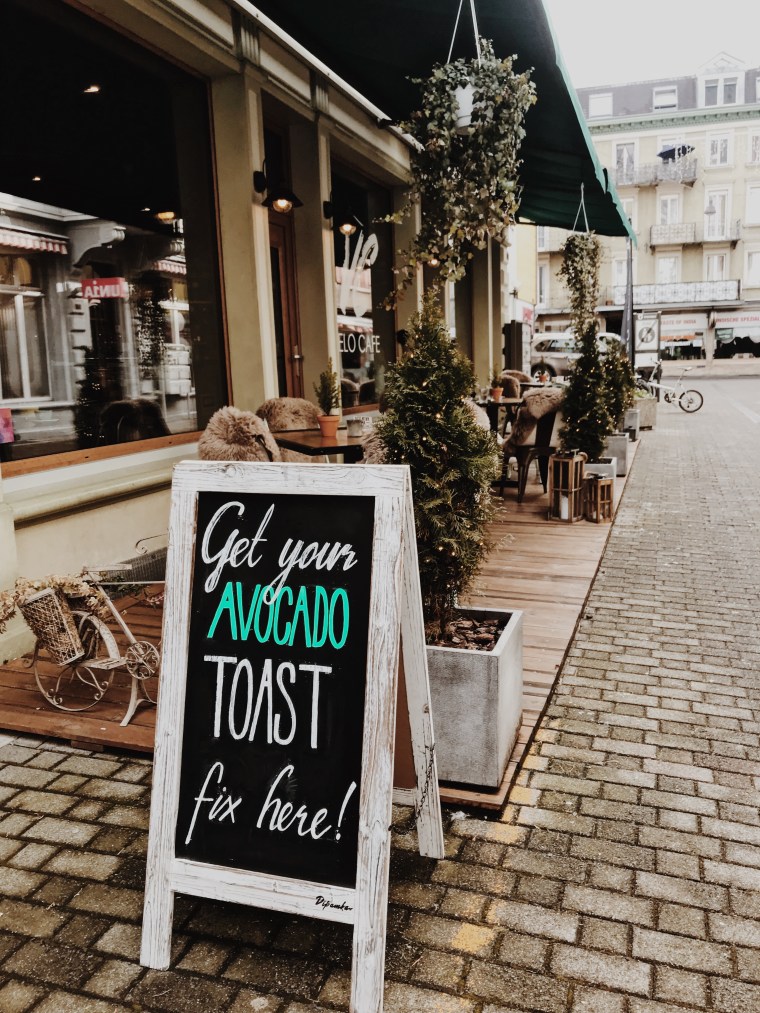 Get your
AVOCADO
TOAST
fix here!
ELO CAFE
UNIA